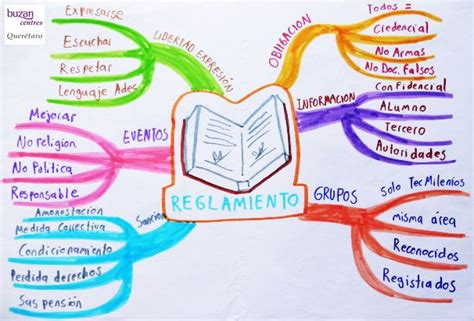 buzan
centres
Querétaro
Expresarse
Escuchar
Respetar
Lenguaje Ades
LIBERTAD EXPRESIÓN
Todos =
Credencial
No Armas
No Doc. Falsos
OBLIGACION
Confidencial
Alumno
Tercero
Autoridades
INFORMACION
Mejorar
No religion
No Politica
Responsable
EVENTOS
REGLAMIENTO
Amonestacion
Medida Correctiva
Condicionamiento
Perdida derechos
Suspensión
Sanción
GRUPOS
Solo TecMilenios
misma área
Reconocidos
Registrados